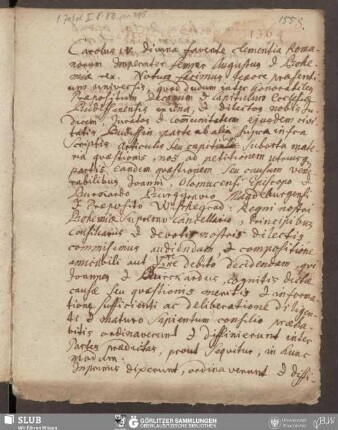 1558.
1364
Carolus IV. divina favente clementia Roma-
norum Imperator semper Augustus & Bohe-
miæ rex. Notum facimus tenore præsenti-
um universis, quod dudum inter honorabiles
Præpositum Decanum & Capitulum Ecclesiæ
Budissinensis ex una, & dilectos nobis Ju-
dicem, Juratos & communitatem ejusdem civi-
tatis Budissin parte ab alia, supra infra
scriptis articulis seu capitulis suborta mate-
ria quæstionis, nos ad petitionem utriusque
partis, eandem quæstionem seu causam vene-
rabilibus Joanni, Olomucensi Episcopo &
Burckardo Burggravio Magdeburgensi
& Præposito Wissehegrad: Regni nostri
Bohemiæ supremo Cancellario, Principibus
Consiliariis & devotis nostris dilectis
commisimus audiendam & compositione
amicabili aut fine debito decidendam, qui
Joannes & Burckardus, cognitis dictæ
causæ seu quæstionis meritis & informa-
tione sufficienti ac deliberatione diligen-
ti & maturo sapientum consilio præha-
bitis ordinaverunt & diffinierunt inter
Partes prædictas, prout sequitur, in hunc
modum.
Inprimis dixerunt, ordinaverunt & diffi-
SLUB
Wir führen Wissen.
GÖRLITZER SAMMLUNGEN
OBERLAUSITZISCHE BIBLIOTHEK